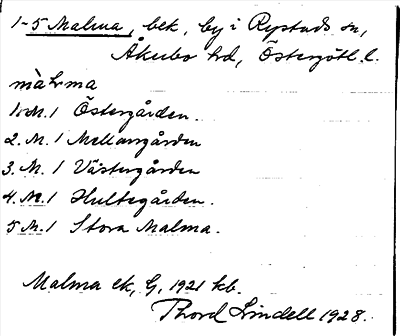 1-5 Malma, bek, by i Rystads sn,
Åkerbo hd, Östergötl. l.
màlrma
1. M. 1 Östergården.
2. M. 1 Mellangården
3. M. 1 Västergården
4. M. 1 Hultegården.
5 M. 1 Stora Malma.
Malma ek, G, 1921 kb.
Thord Lindell 1928.